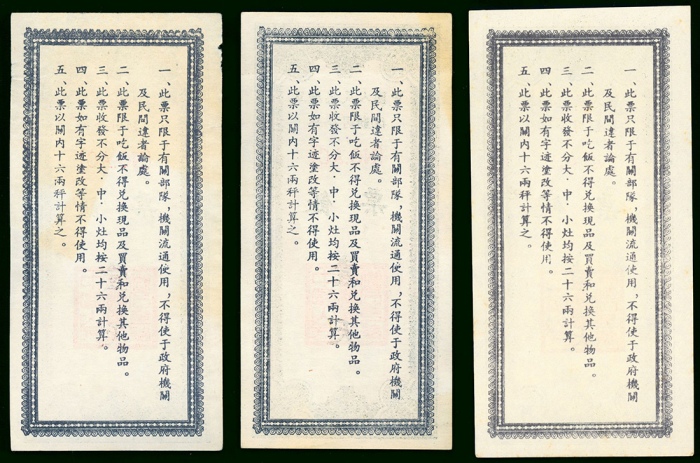 一、此票只限于有關部隊,機關流通使用,不得使于政府機關
及民間違者論處。
二、此票限于吃飯不得兑換現品及買賣和兑換其他物品。
三、此票收發不分大·中·小灶均按二十六兩計算。
四、此票如有字迹塗改等情不得使用。
五、此票以關內十六兩秤計算之。
一、此票只限于有關部隊,機關流通使用,不得使于政府機關
及民間違者論處。
二、此票限于吃飯不得兑換現品及買賣和兑換其他物品。
三、此票收發不分大·中·小灶均按二十六兩計算。
四、此票如有字迹塗改等情不得使用。
五、此票以關內十六兩秤計算之。
一、此票只限于有關部隊,機關流通使用,不得使于政府機關
及民間違者論處。
二、此票限于吃飯不得兑換現品及買賣和兑換其他物品。
三、此票收發不分大·中·小灶均按二十六兩計算。
四、此票如有字迹塗改等情不得使用。
五、此票以關內十六兩秤計算之。